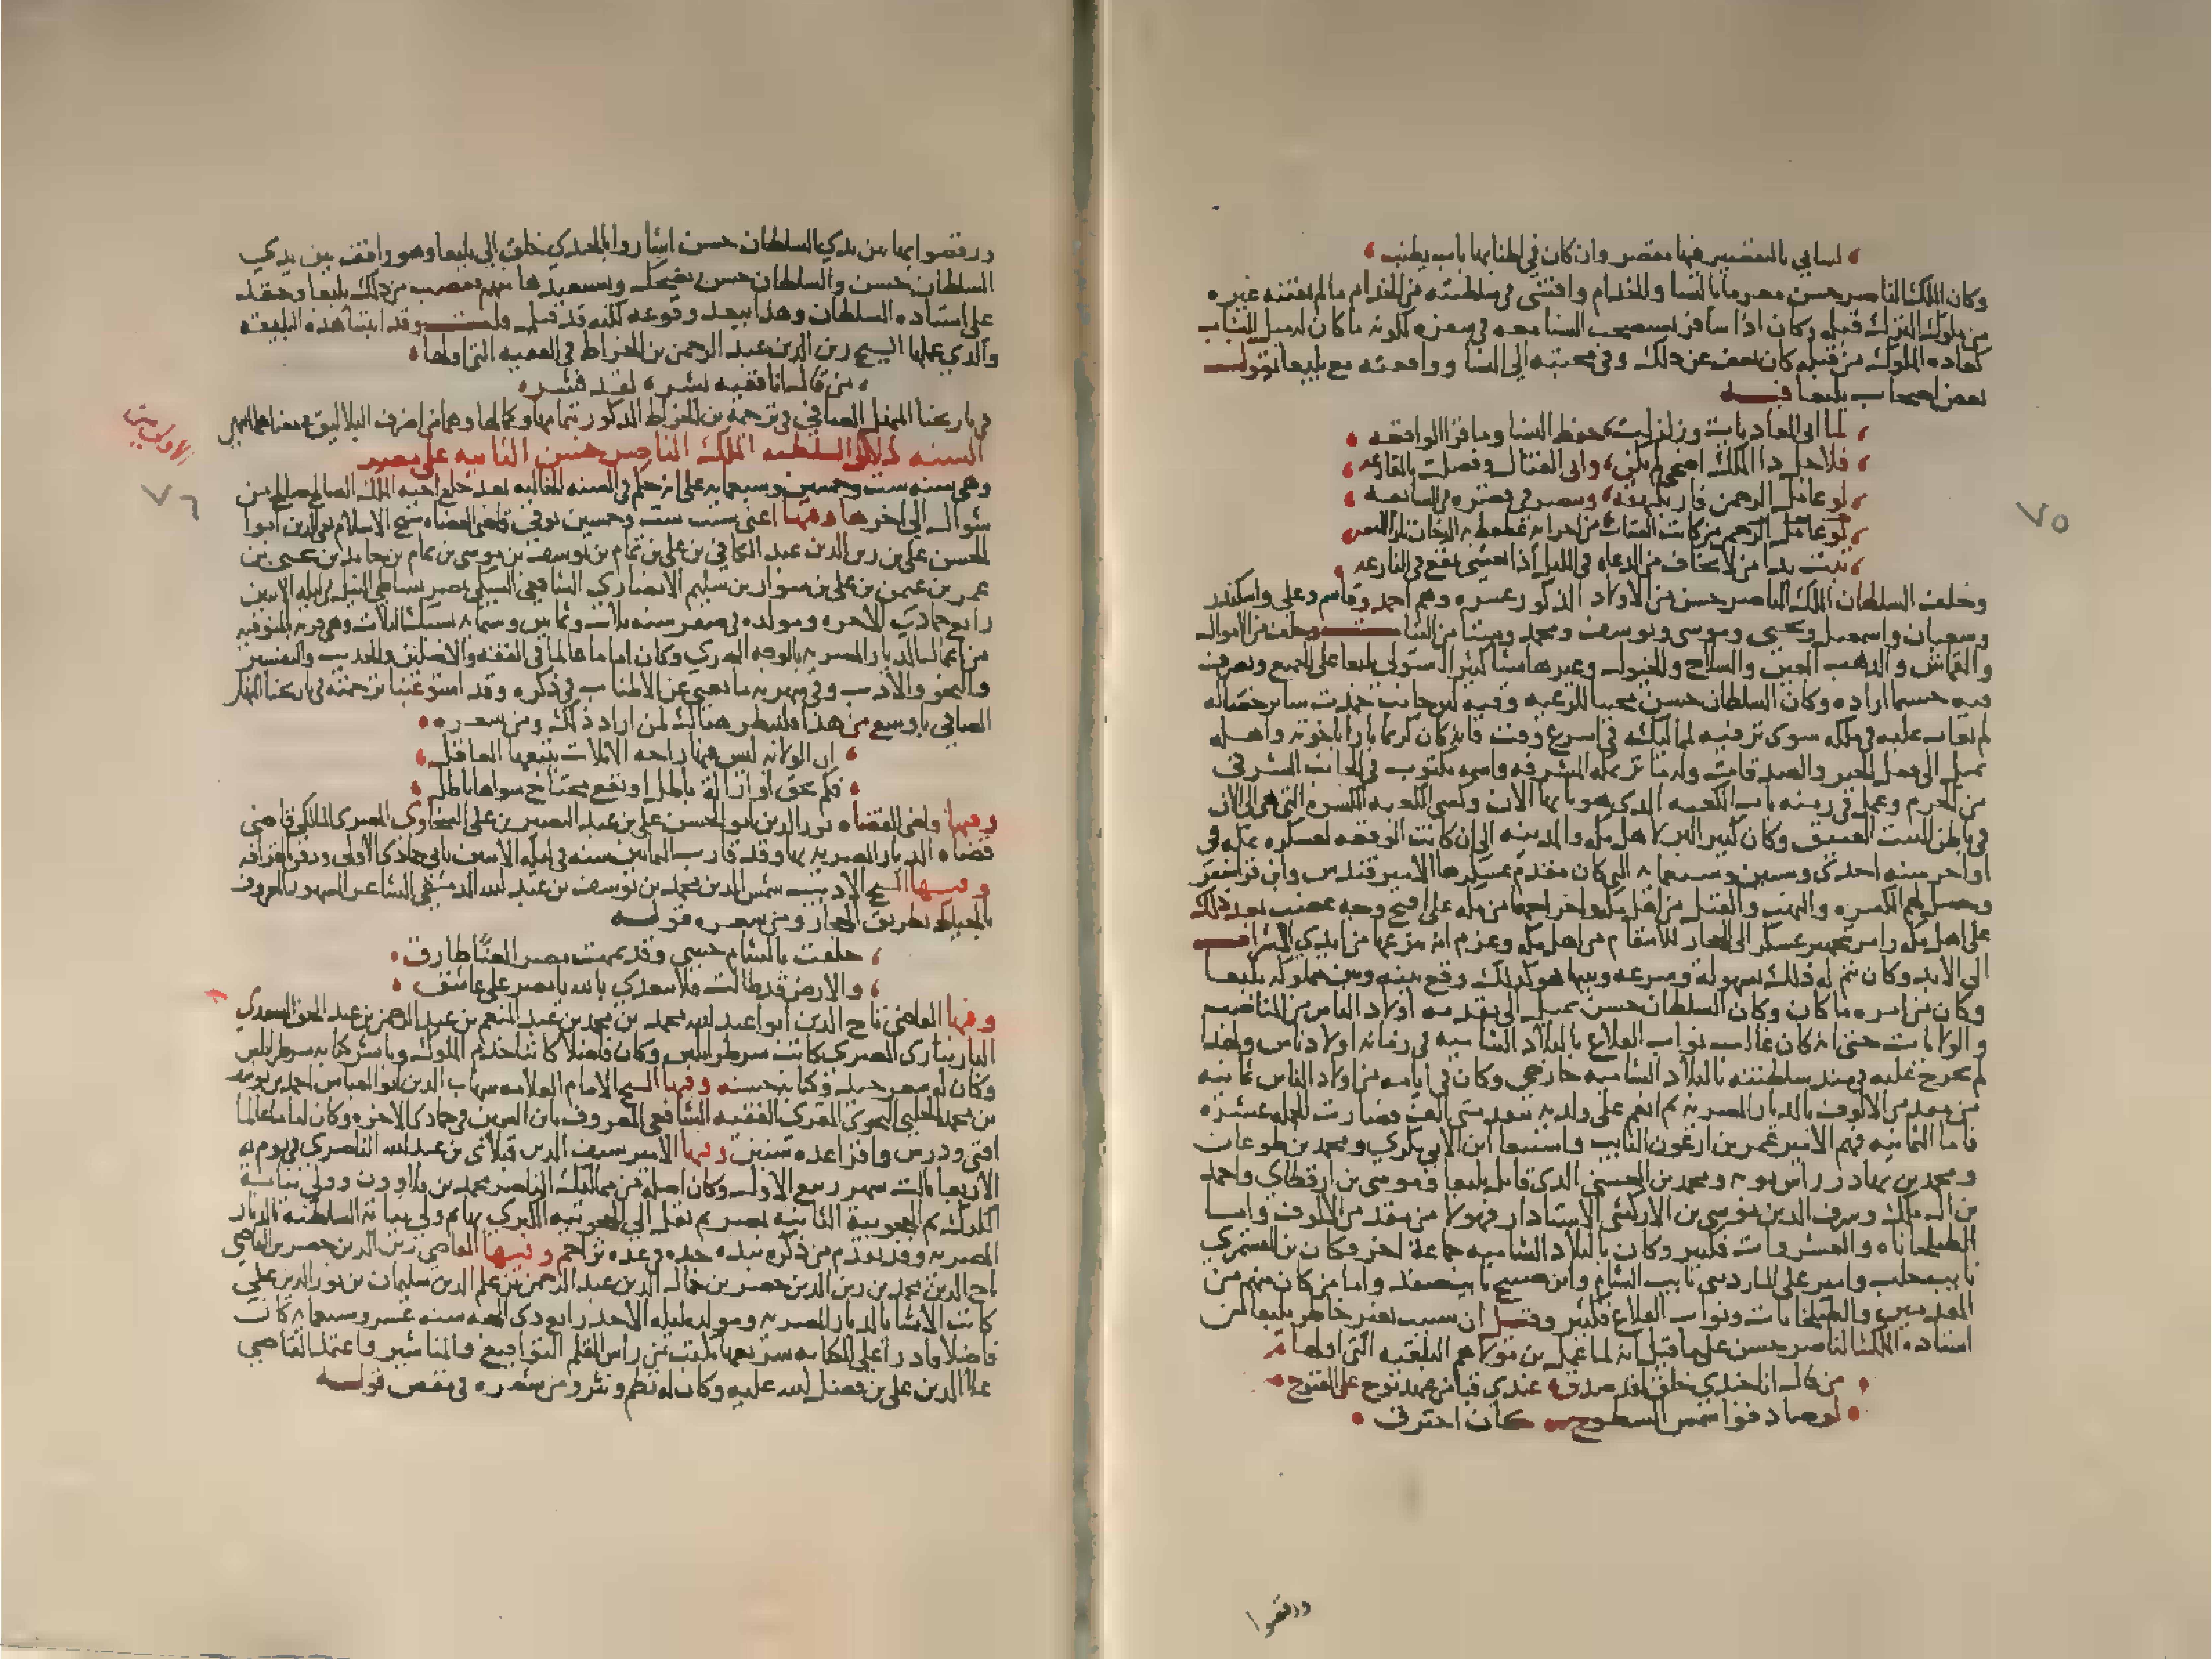 لساني بالتقصير فيها مقصر وان كان في اطنابها باب يطنب
وكان الملك الناصر حسن مغرما بالنسا والخدام واقتنى في سلطنته من الخدام ما لم يقتنه غيره
من ملوك الترك قبله وكان اذا سافر يستصحب النسا معه في سفره لكونه ما كان له ميل للشباب
كعاده الملوك من قبله كان يعف عن ذلك وفي محبته الى النسا وواقعته مع يلبغا يقول
بعض اصحاب يلبغا فيه
لما اتى العاديات وزلزلت حفظ النسا وما قرا الواقعه
فلاجل ذا الملك اضحى لم يكن واتى القتال وفصلت بالقارعه
لو عامل الرحمن فاز بكهفه وبنصره في عصره في السابعه
من كانت القينات من احزابه عطعط به الدخان نار
تبت يدا من لا يخاف من الدعا في الليل اذا يغشى يقع في النازعه
وخلف السلطان الملك الناصر حسن من الاولاد الذكور عشره وهم احمد وقاسم وعلى واسكندر
وشعبان واسمعيل ويحيى وموسى ويوسف ومحمد وستا من البنات وخلف من الاموال
والقماش والذهب العين والسلاح والخيول وغيرها شيا كثيرا استولى يلبغا على الجميع وتصرف
فيه حسبما اراده وكان السلطان حسن محببا للرعيه وفيه لين جانب حمدت ساير خصاله
لم يعاب عليه في ملكه سوى ترقيه لمماليكه في اسرع وقت فانه كان كريما بارا باخوته واهله
يميل الى فعل الخير والصدقات وله ماثر بمكه المشرفه واسمه مكتوب في الجانب الشرقي
من الحرم وعمل في زمنه باب الكعبه الذي هو بابها الان وكسى الكعبه الكسوه التي هى الى الان
في باطن البيت العتيق وكان كثير البر لاهل مكه والمدينه الى ان كانت الوقعه لعسكره بمكه في
اواخر سنه احدى وستين وسبعمايه التي كان مقدم عسكرها الامير قندس وابن قراسنقر
وحصل لهم الكسره والنهب والقتل من اهل مكه واخراجهما من مكه على اقبح وجه غضب بعد ذلك
على اهل مكه وامر بتجهيز عسكر الى الحجاز للانتقام من اهل مكه وعزم انه ينزعها من ايدي الشراف
الى الابد وكان يتم له ذلك بسهوله وسرعه وبينما هو كذلك وقع بينه وبين مملوكه يلبغا
وكان من امره ما كان وكان السلطان حسن يميل الى تقدمه اولاد الناس من المناصب
والولايات حتى انه كان غالب نواب القلاع بالبلاد الشاميه في زمانه اولاد ناس ولهذا
لم يخرج عليه في مده سلطنته بالبلاد الشاميه خارجي وكان في ايامه من اولاد الناس ثمانيه
من مقدمي الالوف بالديار المصريه ثم انعم على ولديه بتقدمتي الف فصارت الجمله عشره
فاما الثمانيه فهم الامير عمر بن ارغون النايب واسنبغا ابن الابي بكري ومحمد بن طوغان
ومحمد بن بهادر راس نوبه ومحمد بن المحسني الذي قاتل يلبغا وموسى بن ارقطاي واحمد
بن ال ملك وشرف الدين موسى بن الازكشي الاستادار فهولا من مقدمي الالوف واما
الطبلخاناه والعشروات فكثير وكان بالبلاد الشاميه جماعة اخر وكان بن القشتمري
نايب حلب وامير على المارديني نايب الشام وابن صبح نايب صفد واما من كان منهم من
المقدمين والطبلخانات ونواب القلاع فكثير وقيل ان سبب تغير خاطر يلبغا من
استاده الملك الناصر حسن على ما قيل انه لما عمل بن مولاهم البليقه التي اولها
من قال انا جندي خلق لقد صدق عندي قبا من عهد نوح على الفتوح
لو صادفوا شمس السطوح كان احترق
ورقصوا
٧٥
ورقصوا بها بين يدي السلطان حسن اشاروا بالجندي خلق الى يلبغا وهو واقف بين يدي
السلطان حسن والسلطان حسن يضحك ويستعيدها منهم فغضب من ذلك يلبغا وحقد
على استاده السلطان وهذا يبعد وقوعه لكنه قد قيل قلت وقد اثبتنا هذه البليقه
والذي عملها الشيخ زين الدين عبد الرحمن بن الخراط في الفقيه التي اولها
من قال انا فقيه بشره لقد فشر
في تاريخنا المنهل الصافي في ترجمة بن الخراط المذكور بتمامها وكمالها وهما من اظرف البلاليق في معناهما
السنه الاولى من سلطنه الملك الناصر حسن الثانيه على مصر
٧٦
وهي سنه ست وخمسين وسبعمايه على انه حكم في السنه الخاليه بعد خلع اخيه الملك الصالح صالح من
شوال الى اخرها وفيها اعنى سنه ست وخمسين توفي قاضي القضاه شيخ الاسلام تقي الدين ابوا
الحسن علي بن زين الدين عبد الكافي بن علي بن تمام بن يوسف بن موسى بن تمام بن حامد بن يحيى بن
عمر بن عثمن بن علي بن سوار بن سليم الانصاري الشافعي السبكي بمصر بشاطي النيل في ليله الاثنين
رابع جمادى الاخره ومولده في صفر سنه ثلاث وثمانين وستمايه بسبك الثلاث وهي قريه بالمنوفيه
من اعمال الديار المصريه بالوجه البحري وكان اماما عالما في الفقه والاصلين والحديث والتفسير
والنحو والادب وفي شهرته ما يغني عن الاطناب في ذكره وقد استوعبنا ترجمته في تاريخنا المنهل
الصافي باوسع من هذا فلينظر هناك لمن اراد ذلك ومن شعره
ان الولايه ليس فيها راحه الا ثلاث يبتغيها العاقل
حكم بحق او ازالة باطل او نفع محتاج سواها باطل
وفيها قاضي القضاه نور الدين ابو الحسن علي بن عبد النصير بن علي السخاوي المصري المالكي قاضي
قضاه الديار المصريه بها وقد قارب الثمانين سنه في ليله الاثنين ثاني جمادى الاولى ودفن بالقرافه
وفيها الشيخ الاديب شمس الدين محمد بن يوسف بن عبد الله الدمشقي الشاعر المشهور المعروف
بالخياط بطريق الحجاز ومن شعره قوله
خلفت بالشام حبيبي وقد يممت مصر لعنا طارق
والارض قد طالت فلا تبعدي بالله يا مصر على عاشق
وفيها القاضي تاج الدين ابوا عبد الله محمد بن محمد بن عبد المنعم بن عبد الرحمن بن عبد الحق السعدي
البارنباري المصري كاتب سر طرابلس وكان فاضلا كاتبا خدم الملوك وباشر كتابه سر طرابلس
وكان له شعر جيد وكتابه حسنه وفيها الشيخ الامام العلامه شهاب الدين ابو العباس احمد بن يوسف
بن محمد الحلبي النحوي المقرئ الفقيه الشافعي المعروف بابن السمين في جمادى الاخره وكان اماما عالما
افتى ودرس واقرا عده سنين وفيها الامير سيف الدين قبلاى بن عبد الله الناصري في يوم
الاربعا ثالث شهر ربيع الاول وكان اصله من مماليك الناصر محمد بن قلاوون وولي نيابة
الكرك ثم الحجوبية الثانيه بمصر ثم نقل الى الحجوبيه الكبرى بها ثم ولي نيابه السلطنه بالديار
المصريه وقد تقدم من ذكره نبذه جيده في عده تراجم وفيها القاضي زين الدين خضر بن القاضي
تاج الدين محمد بن زين الدين خضر بن جمال الدين عبد الرحمن بن علم الدين سليمان بن نور الدين علي
كاتب الانشا بالديار المصريه ومولده ليله الاحد رابع ذى الحجه سنه عشر وسبعمايه كان
فاضلا قادرا على الكتابه سريعها يكتب من راس القلم التواقيع والمناشير واعتمد القاضي
علا الدين علي بن فضل الله عليه وكان له نظم ونثر ومن شعره في مقص قوله